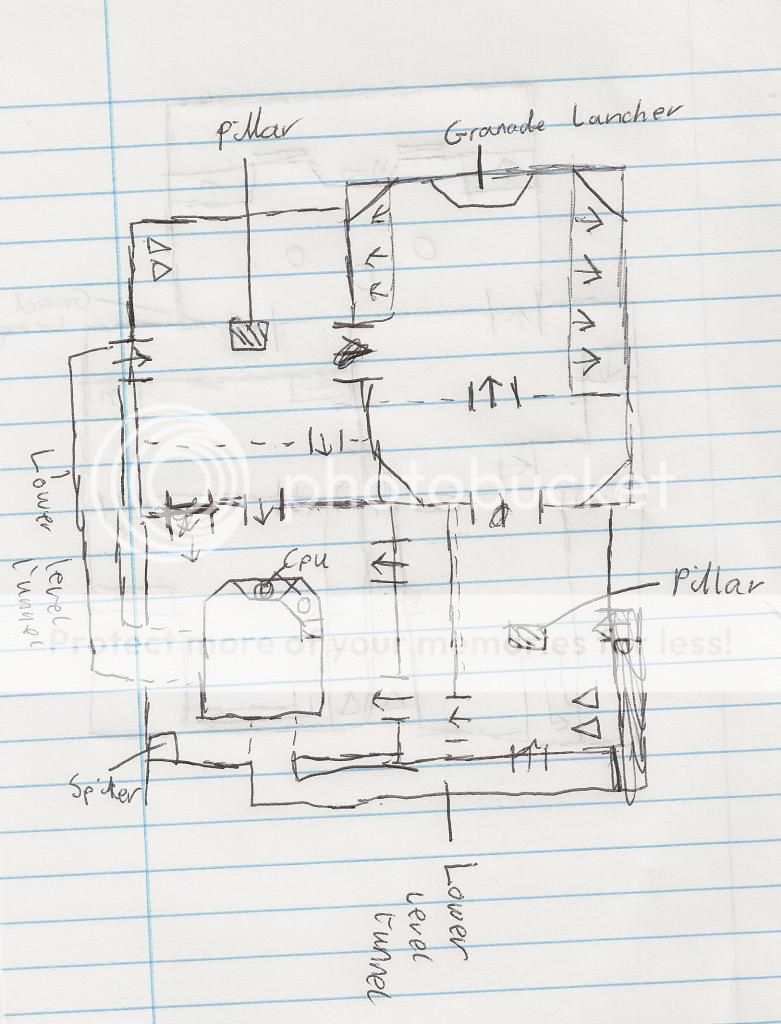 Pillar
Granade Lancher
Lower level tunnel
Cpu
Pillar
Spiter
Lower
Level
tunnel
photobucket
Protect more of your memories for less!